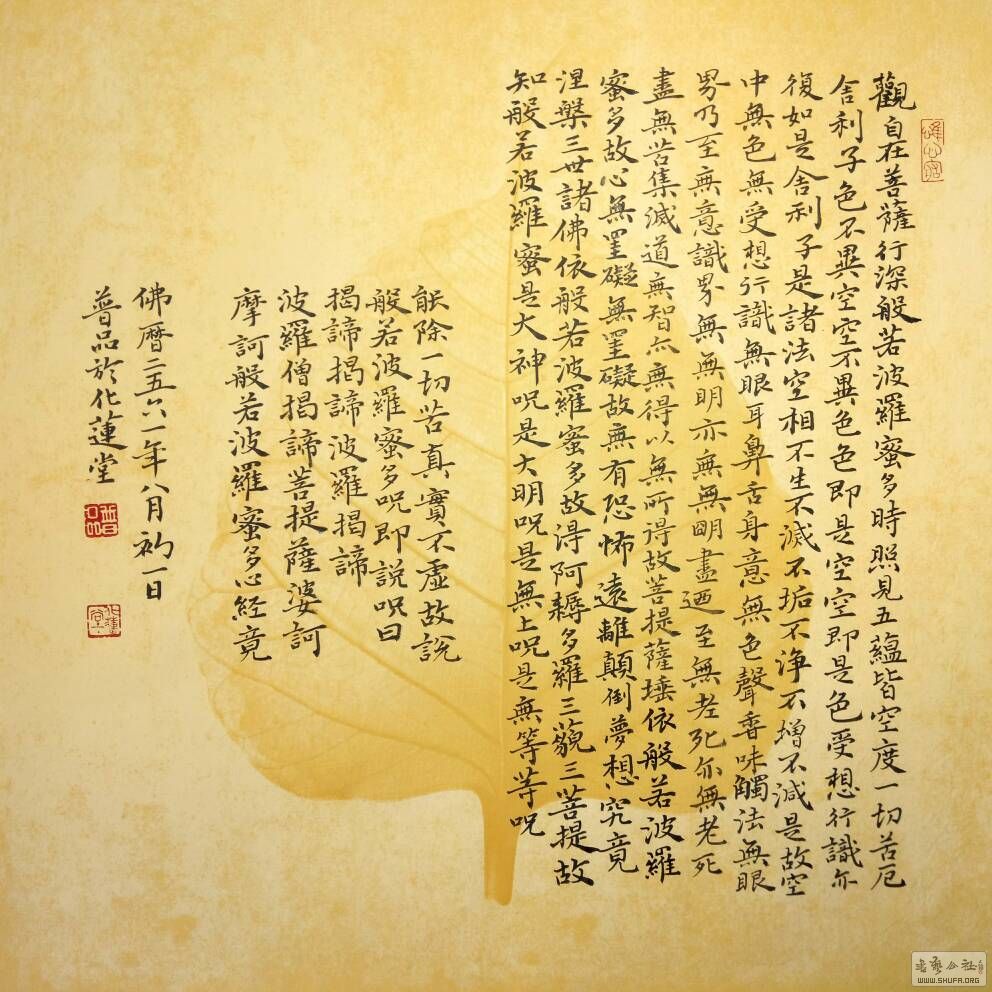 觀自在菩薩行深般若波羅蜜多時照見五蘊皆空度一切苦厄
舍利子色不異空空不異色色即是空空即是色受想行識亦
復如是舍利子是諸法空相不生不滅不垢不淨不增不減是故空
中無色無受想行識無眼耳鼻舌身意無色聲香味觸法無眼
界乃至無意識界無無明亦無無明盡迺至無老死亦無老死
盡無苦集滅道無智亦無得以無所得故菩提薩埵依般若波羅
蜜多故心無罣礙無罣礙故無有恐怖遠離顛倒夢想究竟
涅槃三世諸佛依般若波羅蜜多故得阿耨多羅三藐三菩提故
知般若波羅蜜是大神咒是大明咒是無上咒是無等等咒
能除一切苦真實不虛故說
般若波羅蜜多咒即說咒曰
揭諦揭諦波羅揭諦
波羅僧揭諦菩提薩婆訶
摩訶般若波羅蜜多心經竟
佛曆二五六一年八月初一日
普品於化蓮堂
普品
化蓮堂
WWW.SHUFA.ORG